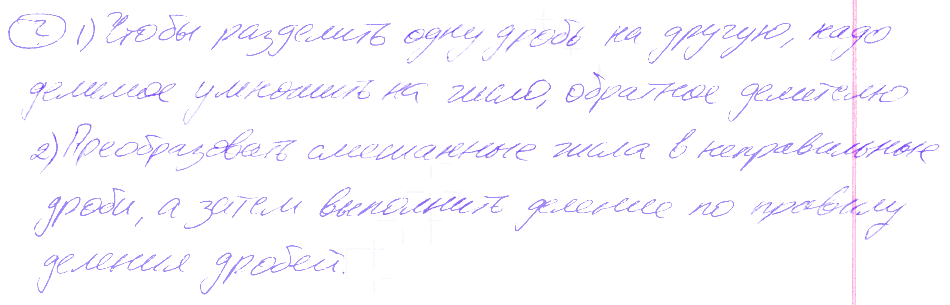 2 1) Чтобы разделить одну дробь на другую, надо
делимое умножить на число, обратное делителю
2) Преобразовать смешанные числа в неправильные
дроби, а затем выполнить деление по правилу
деления дробей.